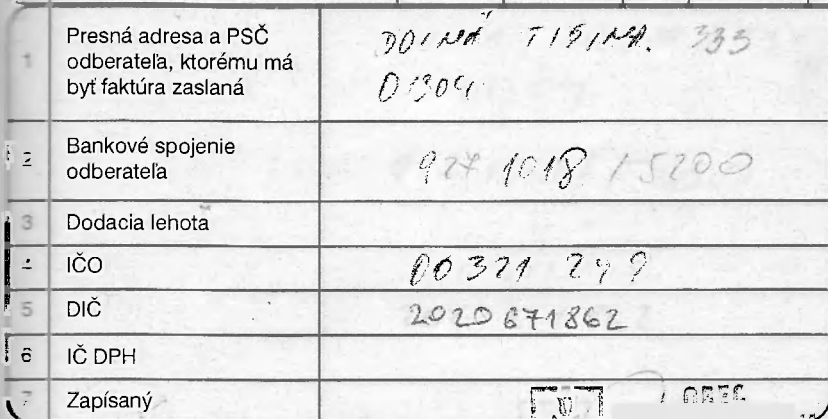 1 Presná adresa a PSČ
odberateľa, ktorému má
byť faktúra zaslaná
DOLNÁ TIŽINA. 333
01304
2 Bankové spojenie
odberateľa
927 1018 / 5200
3 Dodacia lehota
4 IČO
00321 249
5 DIČ
2020671862
6 IČ DPH
7 Zapísaný
OBEC